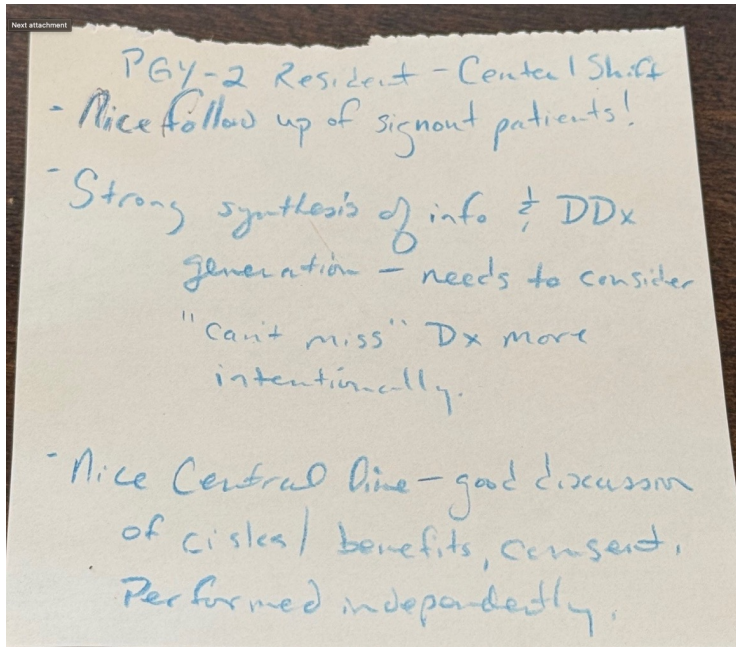 Next attachment
PGY-2 Resident - Central Shift
- Nice follow up of signout patients!
- Strong synthesis of info & DDx
generation - needs to consider
"can't miss" Dx more
intentionally.
- Nice Central line - good discussion
of risks/ benefits, consent.
Performed independently.